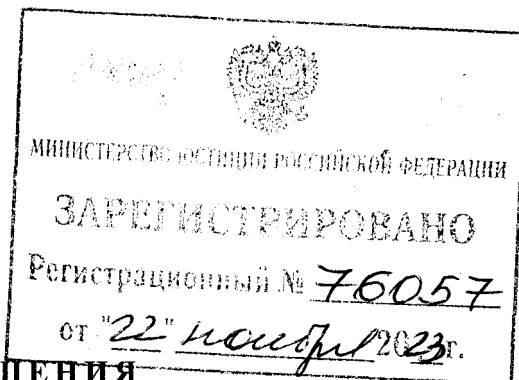 МИНИСТЕРСТВО ЮСТИЦИИ РОССИЙСКОЙ ФЕДЕРАЦИИ
ЗАРЕГИСТРИРОВАНО
Регистрационный № 76057
от "22" ноября 2023г.